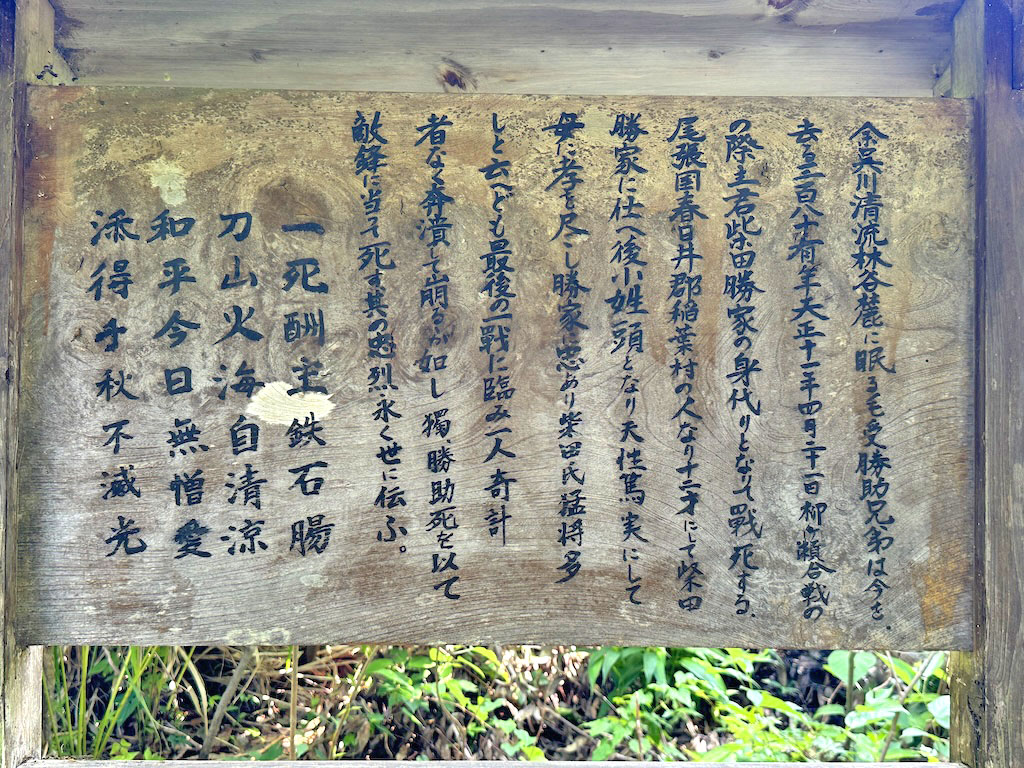 余呉川清流林谷麓に眠る毛受勝助兄弟は今を、
去る三百八十有年天正十一年四月二十一日柳ヶ瀬合戦の
の際主君柴田勝家の身代りとなりて戰死する、
尾張国春日井郡稲葉村の人なり十二才にして柴田
勝家に仕へ後小姓頭となり天性篤実にして
母に孝を尽こし勝家に忠あり柴田氏猛将多
しと云へども最後の一戰に臨み一人奇計
者なく奔潰して崩るゝが如し獨、勝助死を以て
敵鋒に当って死す其の忠烈永く世に伝ふ。
一死酬主鉄石腸
刀山火海自清涼
和平今日無憎愛
添得千秋不滅光